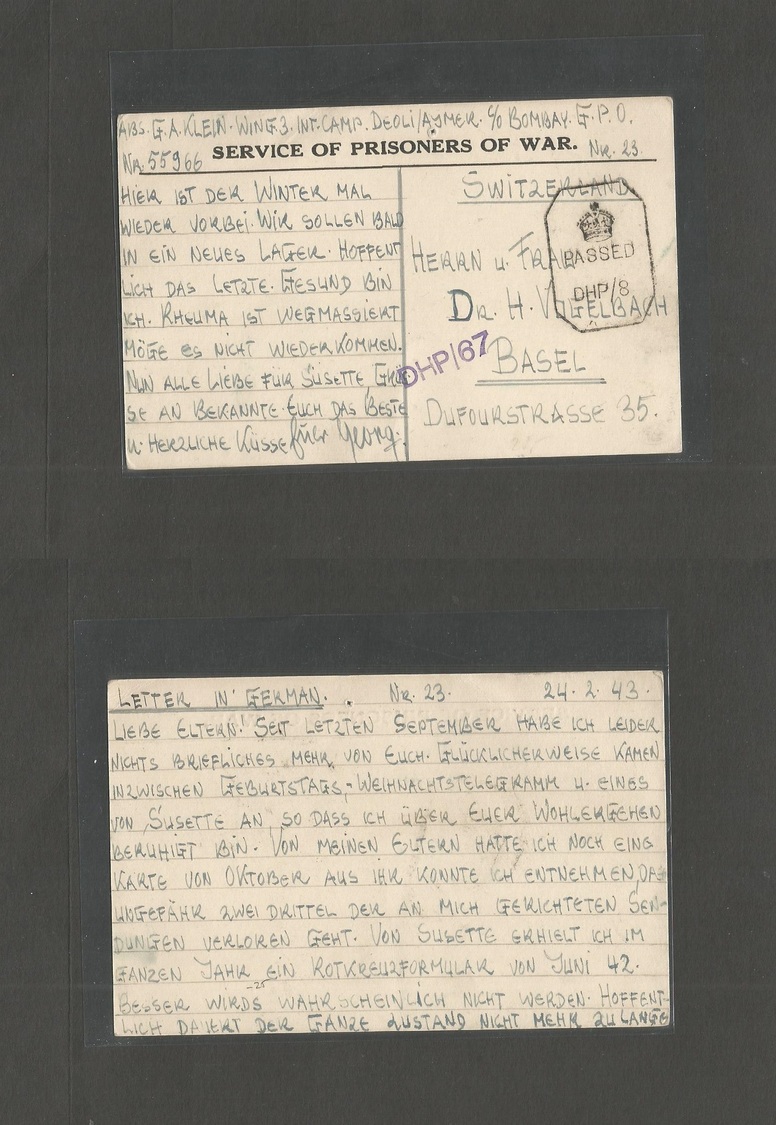 ABS. G. A. KLEIN. WING 3. INT. CAMP. DEOLI/AJMER. C/O BOMBAY. G. P. O.
No. 55966 SERVICE OF PRISONERS OF WAR. NR. 23.
HIER IST DER WINTER MAL
WIEDER VORBEI. WIR SOLLEN BALD
IN EIN NEUES LAGER. HOFFENT
LICH DAS LETZTE. GESUND BIN
ICH. RHEUMA IST WEGMASSIERT
MÖGE ES NICHT WIEDERKOMMEN.
NUN ALLE LIEBE FÜR SUSETTE, GRÜS
SE AN BEKANNTE. EUCH DAS BESTE
U. HERZLICHE KÜSSE Euer Georg.
SWITZERLAND
HERRN U. FRAU
DR. H. VOGELBACH
BASEL
DUFOURSTRASSE 35.
PASSED
DHP/8
DHP/67
LETTER IN GERMAN. NR. 23. 24. 2. 43.
LIEBE ELTERN! SEIT LETZTEN SEPTEMBER HABE ICH LEIDER
NICHTS BRIEFLICHES MEHR VON EUCH. GLÜCKLICHERWEISE KAMEN
INZWISCHEN GEBURTSTAGS,- WEIHNACHTSTELEGRAMM U. EINES
VON SUSETTE AN, SO DASS ICH ÜBER EUER WOHLERGEHEN
BERUHIGT BIN. VON MEINEN ELTERN HATTE ICH NOCH EINE
KARTE VON OKTOBER AUS IHR KONNTE ICH ENTNEHMEN, DASS
UNGEFÄHR ZWEI DRITTEL DER AN MICH GERICHTETEN SEN-
DUNGEN VERLOREN GEHT. VON SUSETTE ERHIELT ICH IM
GANZEN JAHR EIN ROTKREUZFORMULAR VON JUNI 42.
-25
BESSER WIRDS WAHRSCHEINLICH NICHT WERDEN. HOFFENT-
LICH DAUERT DER GANZE ZUSTAND NICHT MEHR ZU LANGE